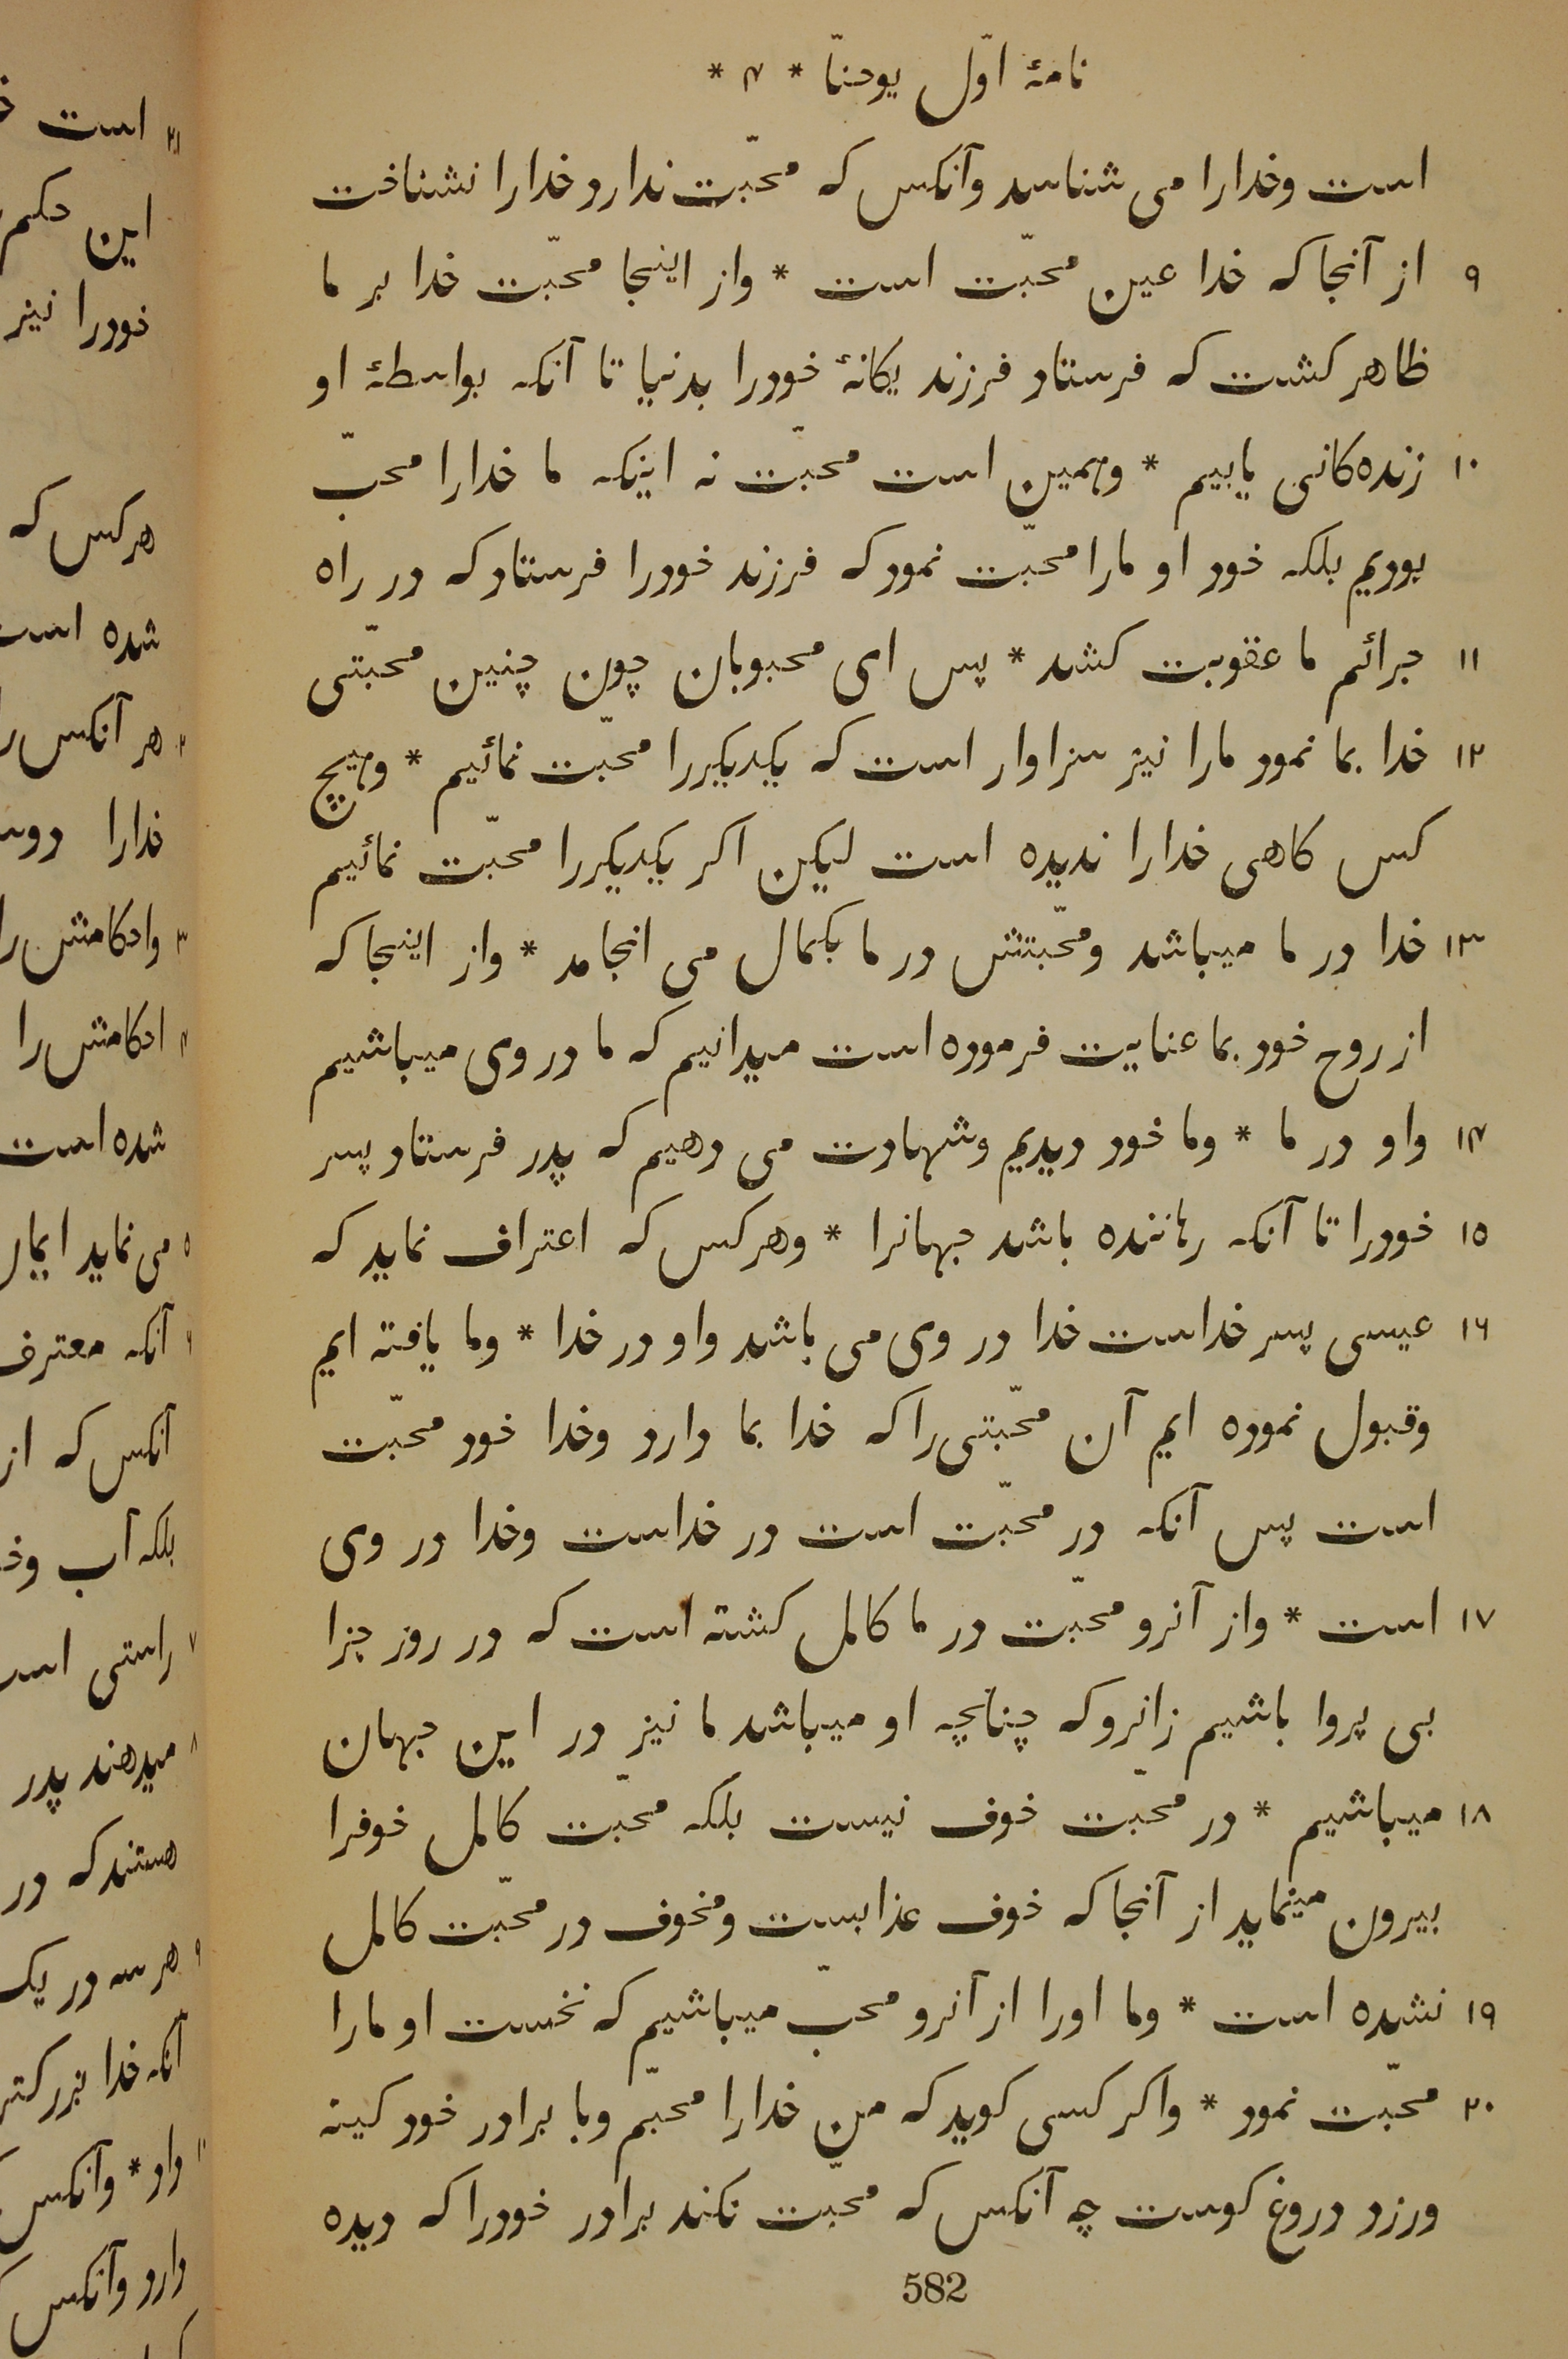 نامهٔ اوّل یوحنّا * ۴ *
است وخدارا می شناسد وآنکس که محبّت ندارد خدارا نشناخت
۹ از آنجا که خدا عین محبّت است * واز اینجا محبّت خدا بر ما
ظاهر کشت که فرستاد فرزند یکانهٔ خودرا بدنیا تا آنکه بواسطهٔ او
۱۰ زنده‌کانی یابیم * وهمین است محبّت نه اینکه ما خدارا محبّ
بودیم بلکه خود او مارا محبّت نمود که فرزند خودرا فرستاد که در راه
۱۱ جرائم ما عقوبت کشد * پس ای محبوبان چون چنین محبّتی
۱۲ خدا بما نمود مارا نیز سزاوار است که یکدیکررا محبّت نمائیم * وهیچ
کس کاهی خدارا ندیده است لیکن اکر یکدیکررا محبّت نمائیم
۱۳ خدا در ما میباشد ومحبّتش در ما بکمال می انجامد * واز اینجا که
از روح خود بما عنایت فرموده است میدانیم که ما در وی میباشیم
۱۴ واو در ما * وما خود دیدیم وشهادت می دهیم که پدر فرستاد پسر
۱۵ خودرا تا آنکه رهاننده باشد جهانرا * وهر کس که اعتراف نماید که
۱۶ عیسی پسر خداست خدا در وی می باشد واو در خدا * وما یافته ایم
وقبول نموده ایم آن محبّتی را که خدا بما دارد وخدا خود محبّت
است پس آنکه در محبّت است در خداست وخدا در وی
۱۷ است * واز آنرو محبّت در ما کامل کشته است که در روز جزا
بی پروا باشیم زانرو که چنانچه او میباشد ما نیز در این جهان
۱۸ میباشیم * در محبّت خوف نیست بلکه محبّت کامل خوفرا
بیرون مینماید از آنجا که خوف عذابست ومخوف در محبّت کامل
۱۹ نشده است * وما اورا از آنرو محبّ میباشیم که نخست او مارا
۲۰ محبّت نمود * واکر کسی کوید که من خدارا محبّم وبا برادر خود کینه
ورزد دروغ کوست چه آنکس که محبّت نکند برادر خودرا که دیده
582
۲۱ است
این حکم
خودرا نیز
هر کس که
شده است
۲ هر آنکس را
خدارا
۳ واحکامش را
۴ احکامش را
شده است
۵ می نماید
۶ آنکه معترف
آنکس که از
بلکه آب
۷ راستی
۸ میدهند پدر
هستند که در
۹ هر سه در یک
آنکه خدا
داد * وآنکس
دارد وآنکس